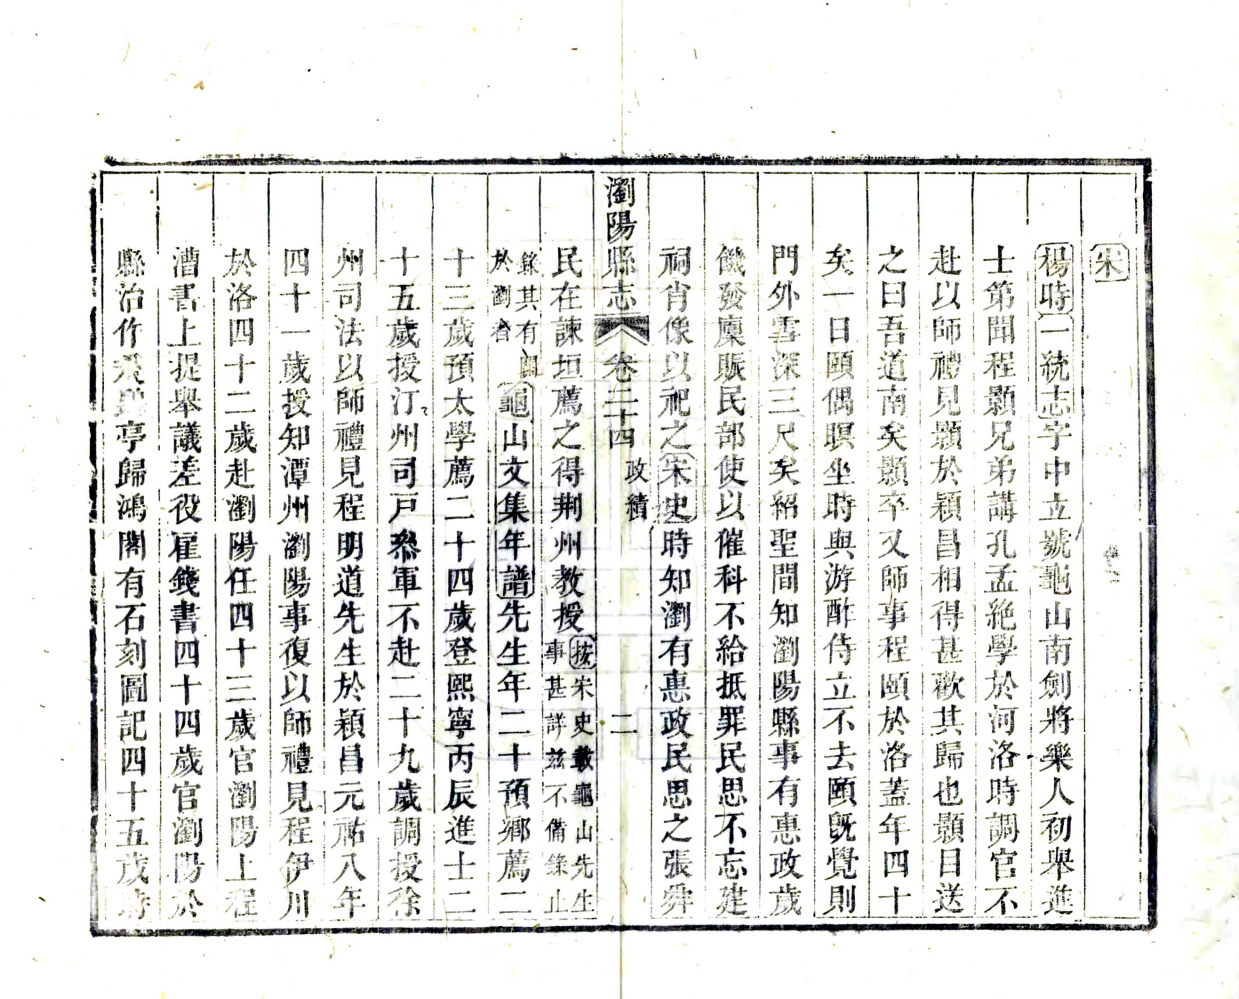 宋
楊時一統志字中立號龜山南劍將樂人初舉進
士第聞程顥兄弟講孔孟絕學於河洛時調官不
赴以師禮見顥於潁昌相得甚歡其歸也顥目送
之曰吾道南矣顥卒又師事程頤於洛蓋年四十
矣一日頤偶瞑坐時與游酢侍立不去頤旣覺則
門外雪深三尺矣紹聖間知瀏陽縣事有惠政歲
饑發廩賑民部使以催科不給抵罪民思不忘建
祠肖像以祀之宋史時知瀏有惠政民思之張舜
瀏陽縣志 卷二十四 政績 二
民在諫垣薦之得荆州教授按宋史載龜山先生
事甚詳兹不備錄止
錄其有關
於瀏者龜山文集年譜先生年二十預鄉薦二
十三歲預太學薦二十四歲登熙寧丙辰進士二
十五歲授汀州司戸叅軍不赴二十九歲調授徐
州司法以師禮見程明道先生於潁昌元祐八年
四十一歲授知潭州瀏陽事復以師禮見程伊川
於洛四十二歲赴瀏陽任四十三歲官瀏陽上程
漕書上提舉議差役雇錢書四十四歲官瀏陽於
縣治作飛鷃亭歸鴻閣有石刻圖記四十五歲時